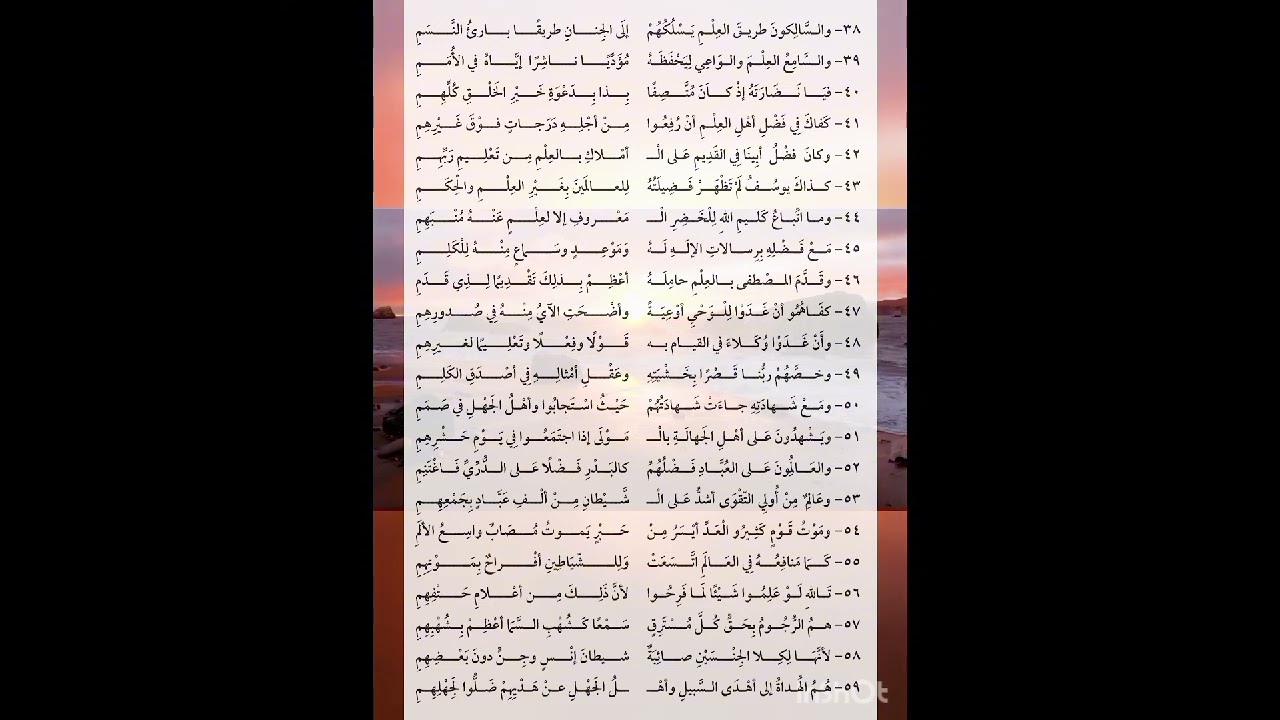 ٣٨- والسَّالِكونَ طريقَ العِلْمِ يَسْلُكُهُمْ إلَى الجِنانِ طريقًا بارئُ النَّسَمِ
٣٩- والسَّامِعُ العِلْمَ والواعِي لِيَحْفَظَهُ مُؤَدِّيًا ناشِرًا إيَّاهُ في الأُمَمِ
٤٠- فيَا نَضَارَتَهُ إذْ كانَ مُتَّصِفًا بِذا بِدَعْوَةِ خَيْرِ الخَلْقِ كُلِّهِمِ
٤١- كَفاكَ فِي فَضْلِ أهْلِ العِلْمِ أنْ رُفِعُوا مِنْ أجْلِهِ دَرَجاتٍ فوْقَ غَيْرِهِمِ
٤٢- وكانَ فضْلُ أبِينَا فِي القَدِيمِ عَلى الْـ أمْلاكِ بالعِلْمِ مِن تَعْلِيمِ رَبِّهِمِ
٤٣- كذاكَ يوسُفُ لَمْ تَظْهَرْ فَضِيلَتُهُ لِلعالَمِينَ بِغَيْرِ العِلْمِ والحِكَمِ
٤٤- وما اتِّباعُ كَلِيمِ اللهِ لِلْخَضِرِ الْـ مَعْروفِ إلا لعِلْمٍ عَنْهُ مُنْبَهِمِ
٤٥- مَعْ فَضْلِهِ بِرِسالاتِ الإلَهِ لَهُ وَمَوْعِدٍ وسَماعٍ مِنْهُ لِلْكَلِمِ
٤٦- وقَدَّمَ المصْطفى بالعِلْمِ حامِلَهُ أعْظِمْ بِذلِكَ تَقْدِيمًا لِذِي قَدَمِ
٤٧- كفَاهُمُو أنْ غَدَوْا لِلْوَحْيِ أوْعِيَةً وأضْحَتِ الآيُ مِنْهُ فِي صُدورِهِمِ
٤٨- وأَنْ غَدَوْا وُكَلاءَ في القيام به قَوْلًا وفِعْلًا وتَعْلِيمًا لغيرِهِمِ
٤٩- وخصَّهُمْ ربُّنا قَصْرًا بِخَشْيَتِهِ وعَقْلِ أمْثالِهِ فِي أصْدَقِ الكَلِمِ
٥٠- ومَعْ شَهادَتِهِ جاءَتْ شَهادَتُهُمْ حَيْثُ اسْتَجابُوا وأهْلُ الجَهْلِ فِي صَمَمِ
٥١- ويَشْهدُونَ عَلى أهْلِ الجَهالَةِ بالْـ مَوْلَى إذا اجتَمَعُوا فِي يَوْمِ حَشْرِهِمِ
٥٢- والعَالِمُونَ عَلى العُبَّادِ فَضْلُهُمُ كالبَدْرِ فَضْلًا عَلى الدُّرِّيِّ فاغْتَنِمِ
٥٣- وعَالِمٌ مِنْ أُولِي التّقْوَى أشَدُّ عَلى الْـ شَّيْطانِ مِنْ ألْفِ عَبَّادٍ بِجَمْعِهِمِ
٥٤- ومَوْتُ قَوْمٍ كَثِيرُو الْعَدِّ أيْسَرُ مِنْ حَبْرٍ يَموتُ مُصَابٌ واسِعُ الألَمِ
٥٥- كَمَا مَنافِعُهُ فِي العَالَمِ اتَّسَعَتْ وَلِلشّيَاطِينِ أفْراحٌ بِمَوْتِهِمِ
٥٦- تَاللهِ لَوْ عَلِمُوا شَيْئًا لَمَا فَرِحُوا لأنَّ ذَلِكَ مِن أعْلامِ حَتْفِهِمِ
٥٧- همُ الرُّجُومُ بِحَقٍّ كُلَّ مُسْتَرِقٍ سَمْعًا كَشُهْبِ السَّمَا أعْظِمْ بِشُهْبِهِمِ
٥٨- لأنَّهَا لِكِلا الجِنْسَيْنِ صائِبَةٌ شيطانَ إنْسٍ وجِنٍّ دونَ بَعْضِهِمِ
٥٩- هُمُ الهُداةُ إلى أهْدَى السَّبيلِ وأهْـ ـلُ الجَهْلِ عنْ هَدْيِهِمْ ضَلُّوا لِجَهْلِهِمِ
InShOt